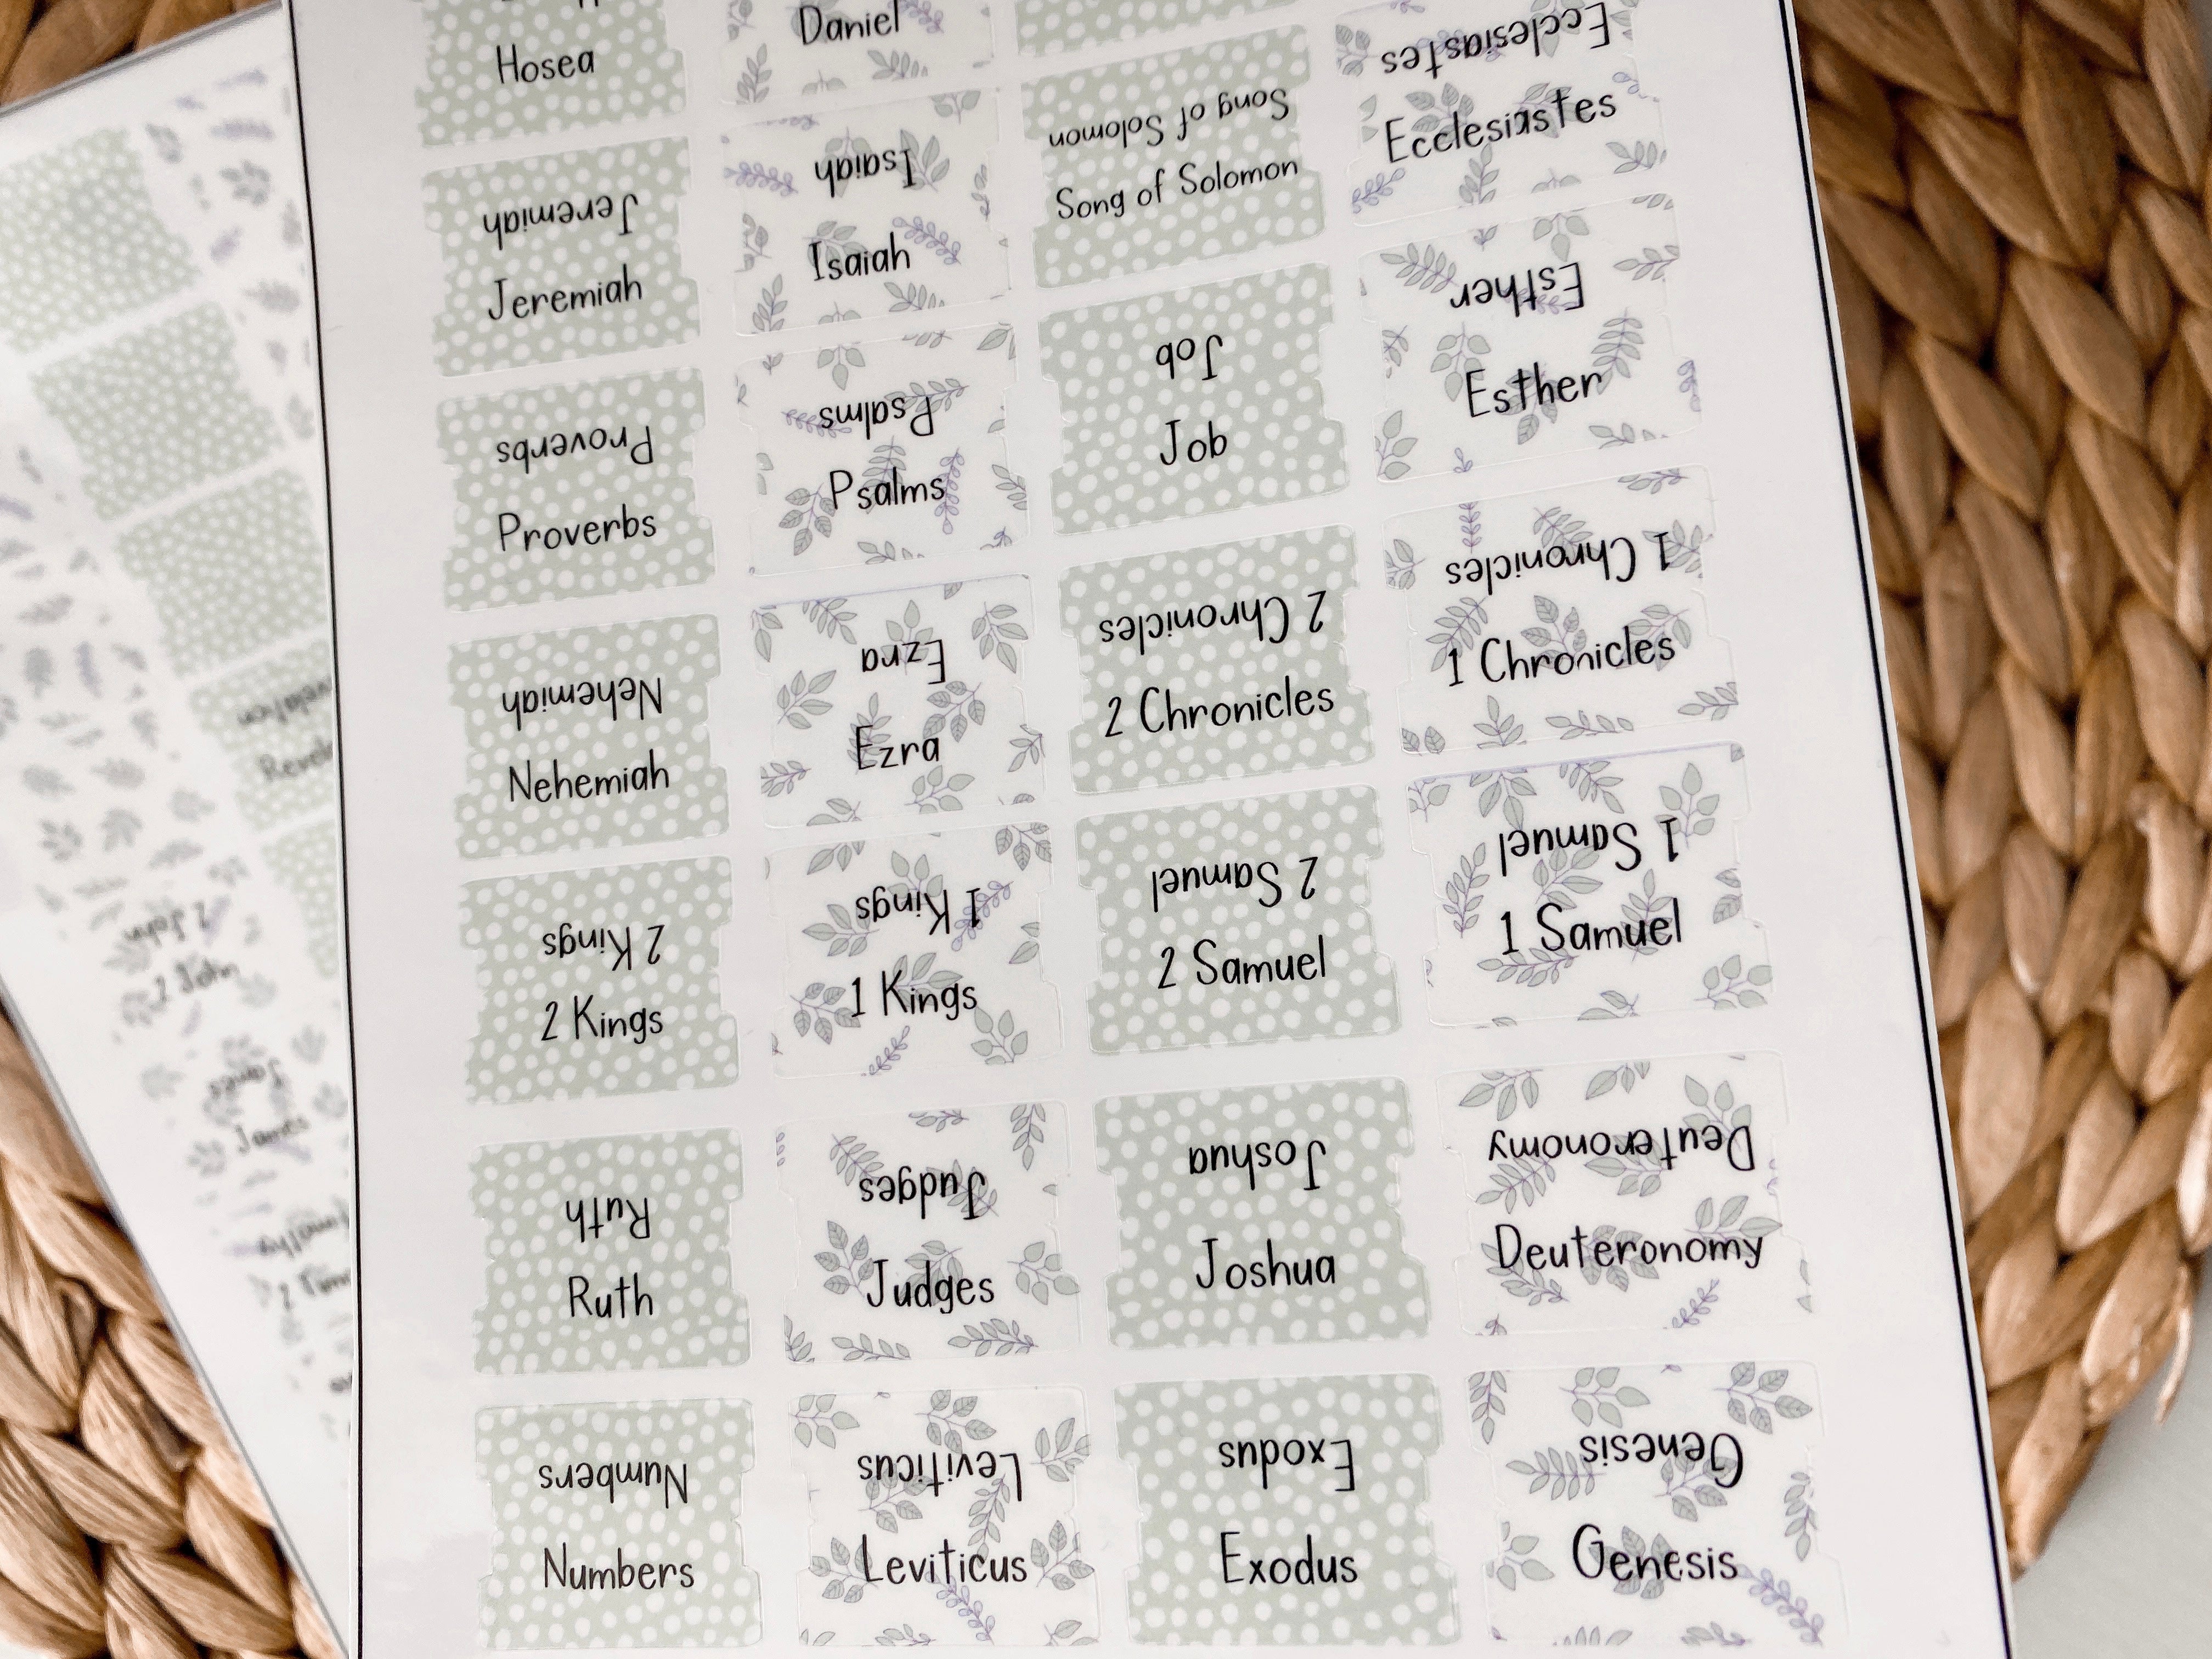 Hosea
Daniel
Ecclesiastes
Ecclesiastes
Jeremiah
Jeremiah
Isaiah
Isaiah
Song of Solomon
Song of Solomon
Esther
Esther
Proverbs
Proverbs
Psalms
Psalms
Job
Job
1 Chronicles
1 Chronicles
Nehemiah
Nehemiah
Ezra
Ezra
2 Chronicles
2 Chronicles
1 Samuel
1 Samuel
2 Kings
2 Kings
1 Kings
1 Kings
2 Samuel
2 Samuel
Deuteronomy
Deuteronomy
Ruth
Ruth
Judges
Judges
Joshua
Joshua
Genesis
Genesis
Numbers
Numbers
Leviticus
Leviticus
Exodus
Exodus
2 John
2 John
James
James